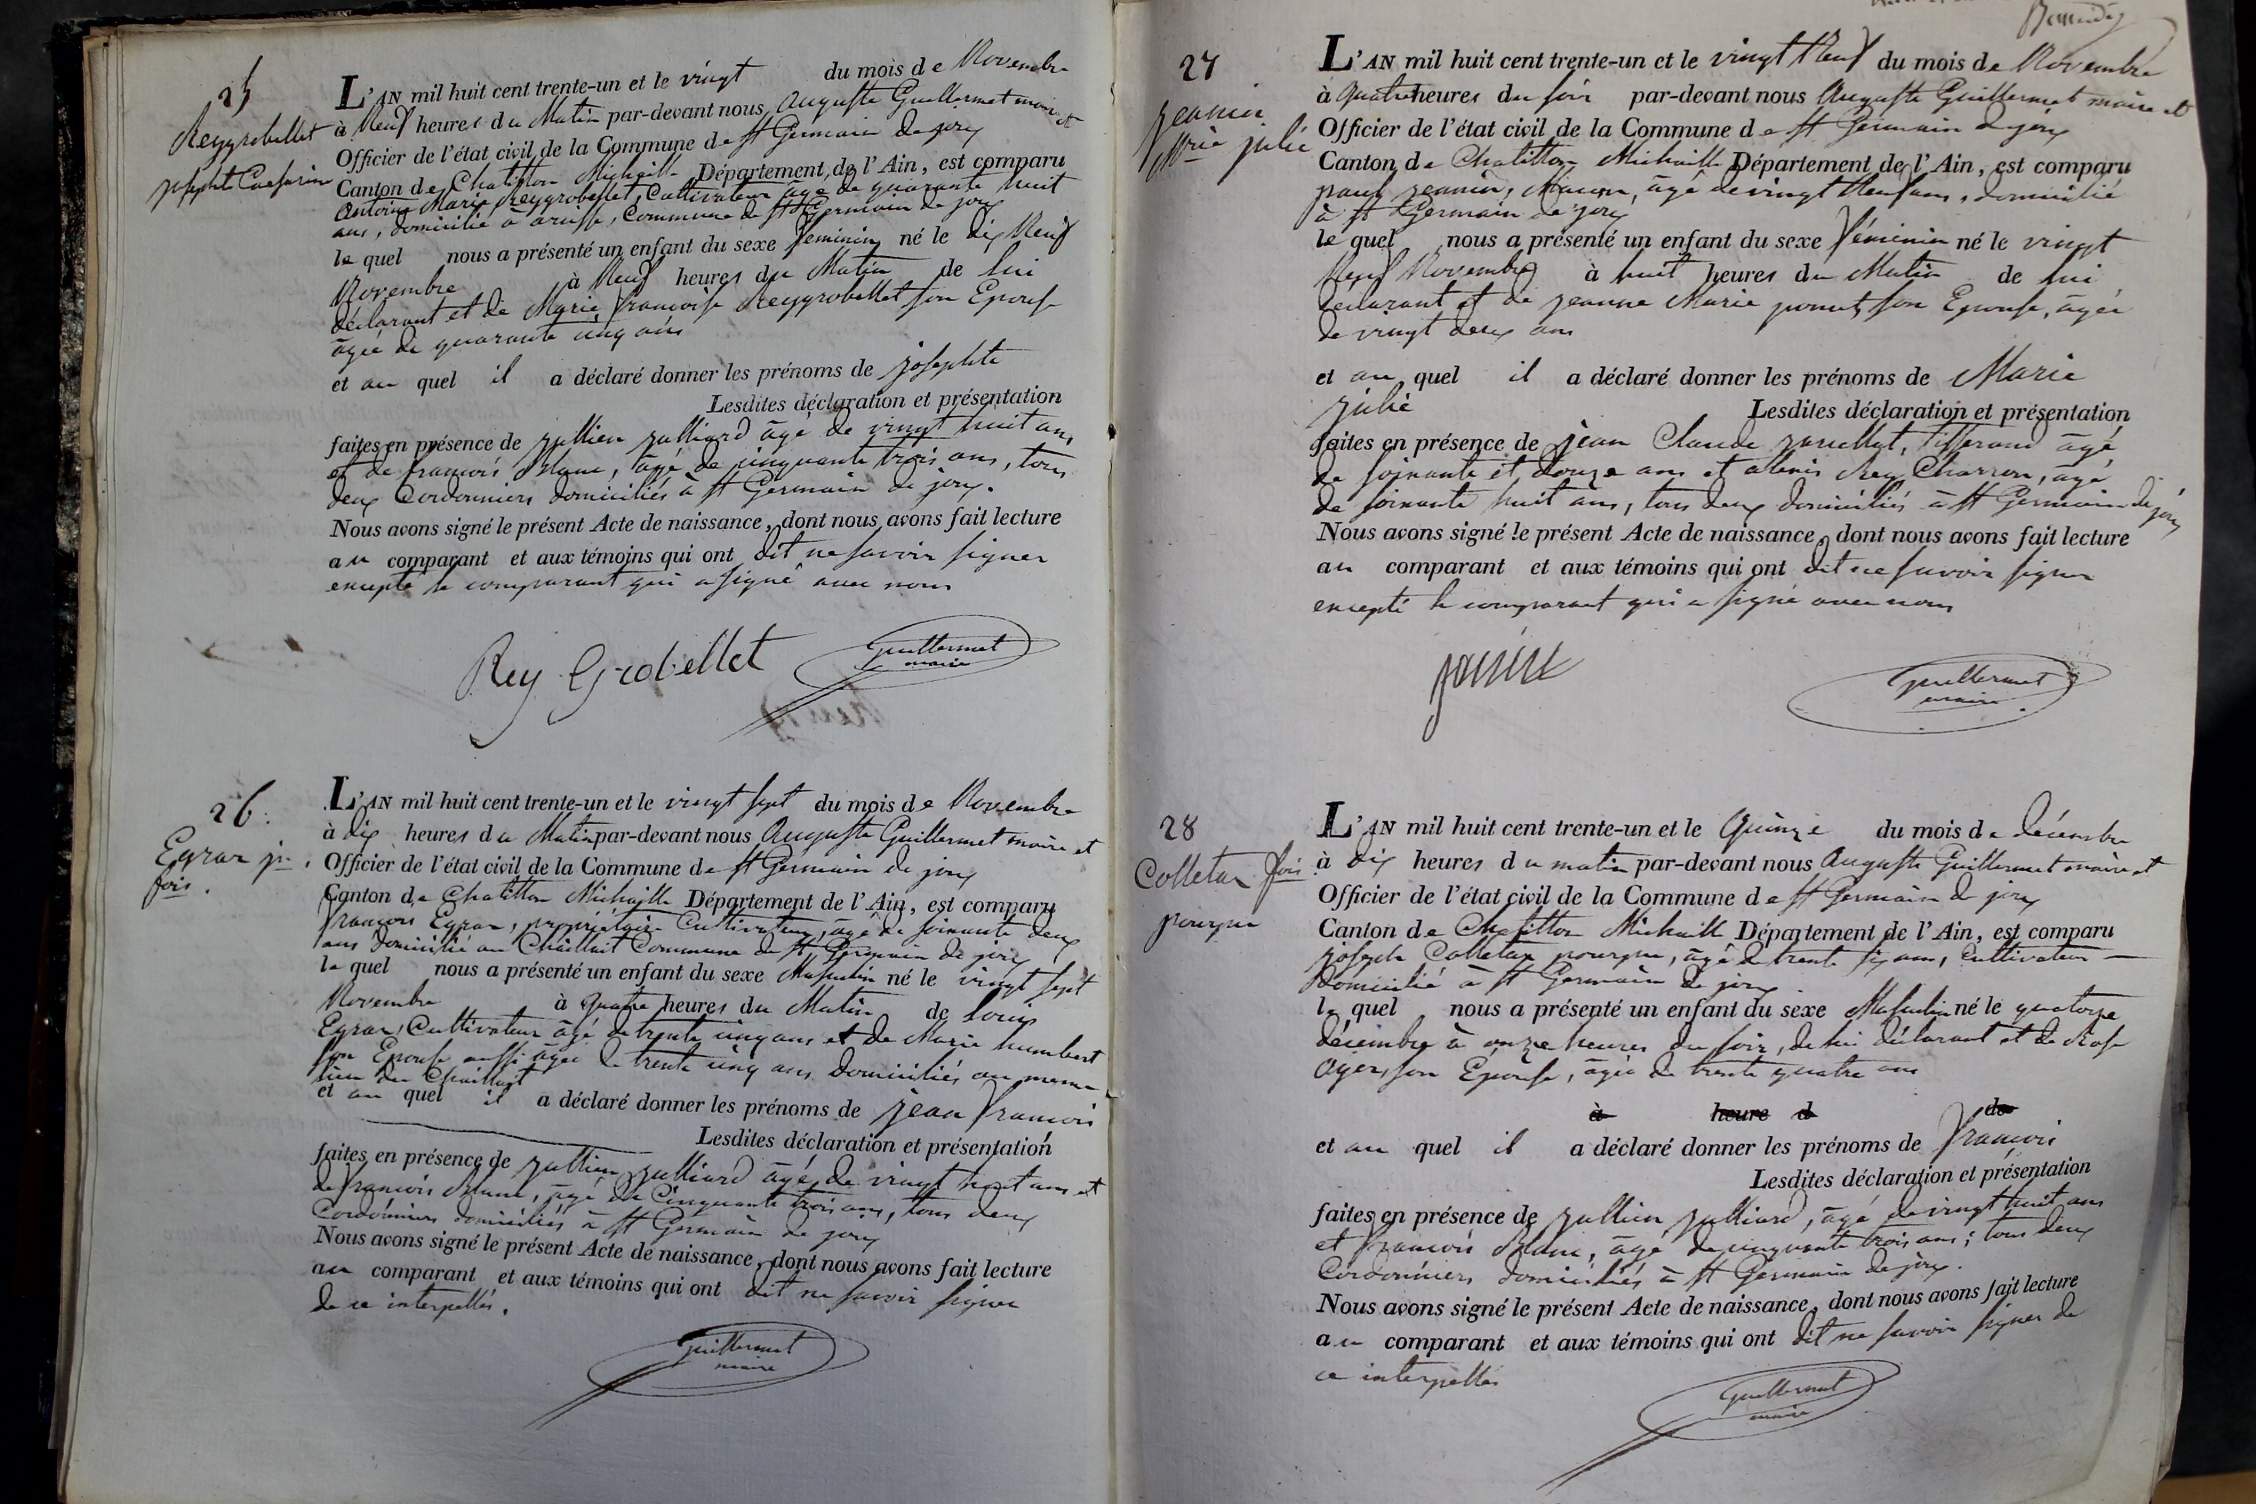 25
Reygrobellet
josephte
L'AN mil huit cent trente-un et le vingt du mois de Novembre
à Neuf heures du Matin par-devant nous Auguste Guillermet maire et
Officier de l'état civil de la Commune de St Germain de joux
Canton de Chatillon Michaille Département de l'Ain, est comparu
Antoine Marie Reygrobellet, Cultivateur âgé de quarante huit
ans, domicilié à Commune de St Germain de joux
le quel nous a présenté un enfant du sexe feminin né le dix Neuf
Novembre à Neuf heures du Matin de lui
déclarant et de Marie françoise Reygrobellet son Epouse
âgée de quarante cinq ans
et au quel il a déclaré donner les prénoms de josephte
Lesdites déclaration et présentation
faites en présence de jullien julliard âgé de vingt huit ans
et de francois Blanc, âgé de cinquante trois ans, tous
deux Cordonniers domiciliés à St Germain de joux.
Nous avons signé le présent Acte de naissance, dont nous avons fait lecture
au comparant et aux témoins qui ont dit ne savoir signer
excepté le comparant qui a signé avec nous
Rey Grobellet
Guillermet
maire
26.
Egraz jn
fois.
L'AN mil huit cent trente-un et le vingt sept du mois de Novembre
à dix heures du Matin par-devant nous Auguste Guillermet maire et
Officier de l'état civil de la Commune de St Germain de joux
Canton de Chatillon Michaille Département de l'Ain, est comparu
francois Egraz, propriétaire Cultivateur, âgé de soixante deux
ans domicilié au Chaillait Commune de St Germain de joux
le quel nous a présenté un enfant du sexe Masculin né le vingt sept
Novembre à quatre heures du Matin de Louis
Egraz, Cultivateur âgé de trente cinq ans et de Marie humbert
son Epouse aussi âgée de trente cinq ans domiciliés au meme
lieu du Chaillait
et au quel il a déclaré donner les prénoms de jean francois
Lesdites déclaration et présentation
faites en présence de jullien julliard âgé de vingt huit ans et
de francois Blanc, âgé de Cinquante trois ans, tous deux
Cordonniers domiciliés à St Germain de joux
Nous avons signé le présent Acte de naissance, dont nous avons fait lecture
au comparant et aux témoins qui ont dit ne savoir signer
de ce interpellés.
Guillermet
maire
27
jeanin
Mrie julie
L'AN mil huit cent trente-un et le vingt Neuf du mois de Novembre
à quatre heures du soir par-devant nous Auguste Guillermet maire et
Officier de l'état civil de la Commune de St Germain de joux
Canton de Chatillon Michaille Département de l'Ain, est comparu
jeanin, Maçon, âgé de vingt Neuf ans, domicilié
à St Germain de joux
le quel nous a présenté un enfant du sexe féminin né le vingt
Neuf Novembre à huit heures du Matin de lui
déclarant et de jeanne Marie ponset, son Epouse, âgée
de vingt deux ans
et au quel il a déclaré donner les prénoms de Marie
julie
Lesdites déclaration et présentation
faites en présence de jean Claude Tisserand âgé
de soixante et douze ans et Rey Charron, âgé
de soixante huit ans, tous deux domiciliés à St Germain de joux
Nous avons signé le présent Acte de naissance, dont nous avons fait lecture
au comparant et aux témoins qui ont dit ne savoir signer
excepté le comparant qui a signé avec nous
Guillermet
maire
28
Colletaz fois
L'AN mil huit cent trente-un et le Quinze du mois de décembre
à dix heures du matin par-devant nous Auguste Guillermet maire et
Officier de l'état civil de la Commune de St Germain de joux
Canton de Chatillon Michaille Département de l'Ain, est comparu
joseph Colletaz âgé de trente six ans, Cultivateur
Domicilié à St Germain de joux
le quel nous a présenté un enfant du sexe Masculin né le quatorze
décembre à onze heures du soir, de lui déclarant et de Rose
son Epouse, âgée de trente quatre ans
à heure d de
et au quel il a déclaré donner les prénoms de francois
Lesdites déclaration et présentation
faites en présence de jullien julliard, âgé de vingt huit ans
et francois Blanc, âgé de cinquante trois ans; tous deux
Cordonniers domiciliés à St Germain de joux.
Nous avons signé le présent Acte de naissance, dont nous avons fait lecture
au comparant et aux témoins qui ont dit ne savoir signer de
ce interpellés
Guillermet
maire